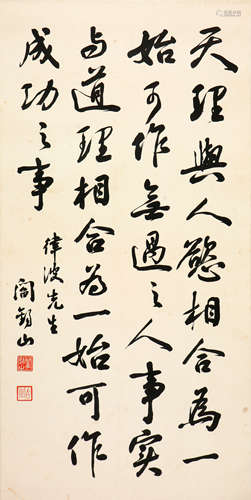 天理與人慾相合為一
始可作無過之人事實
与道理相合為一始可作
成功之事
律波先生
閻錫山